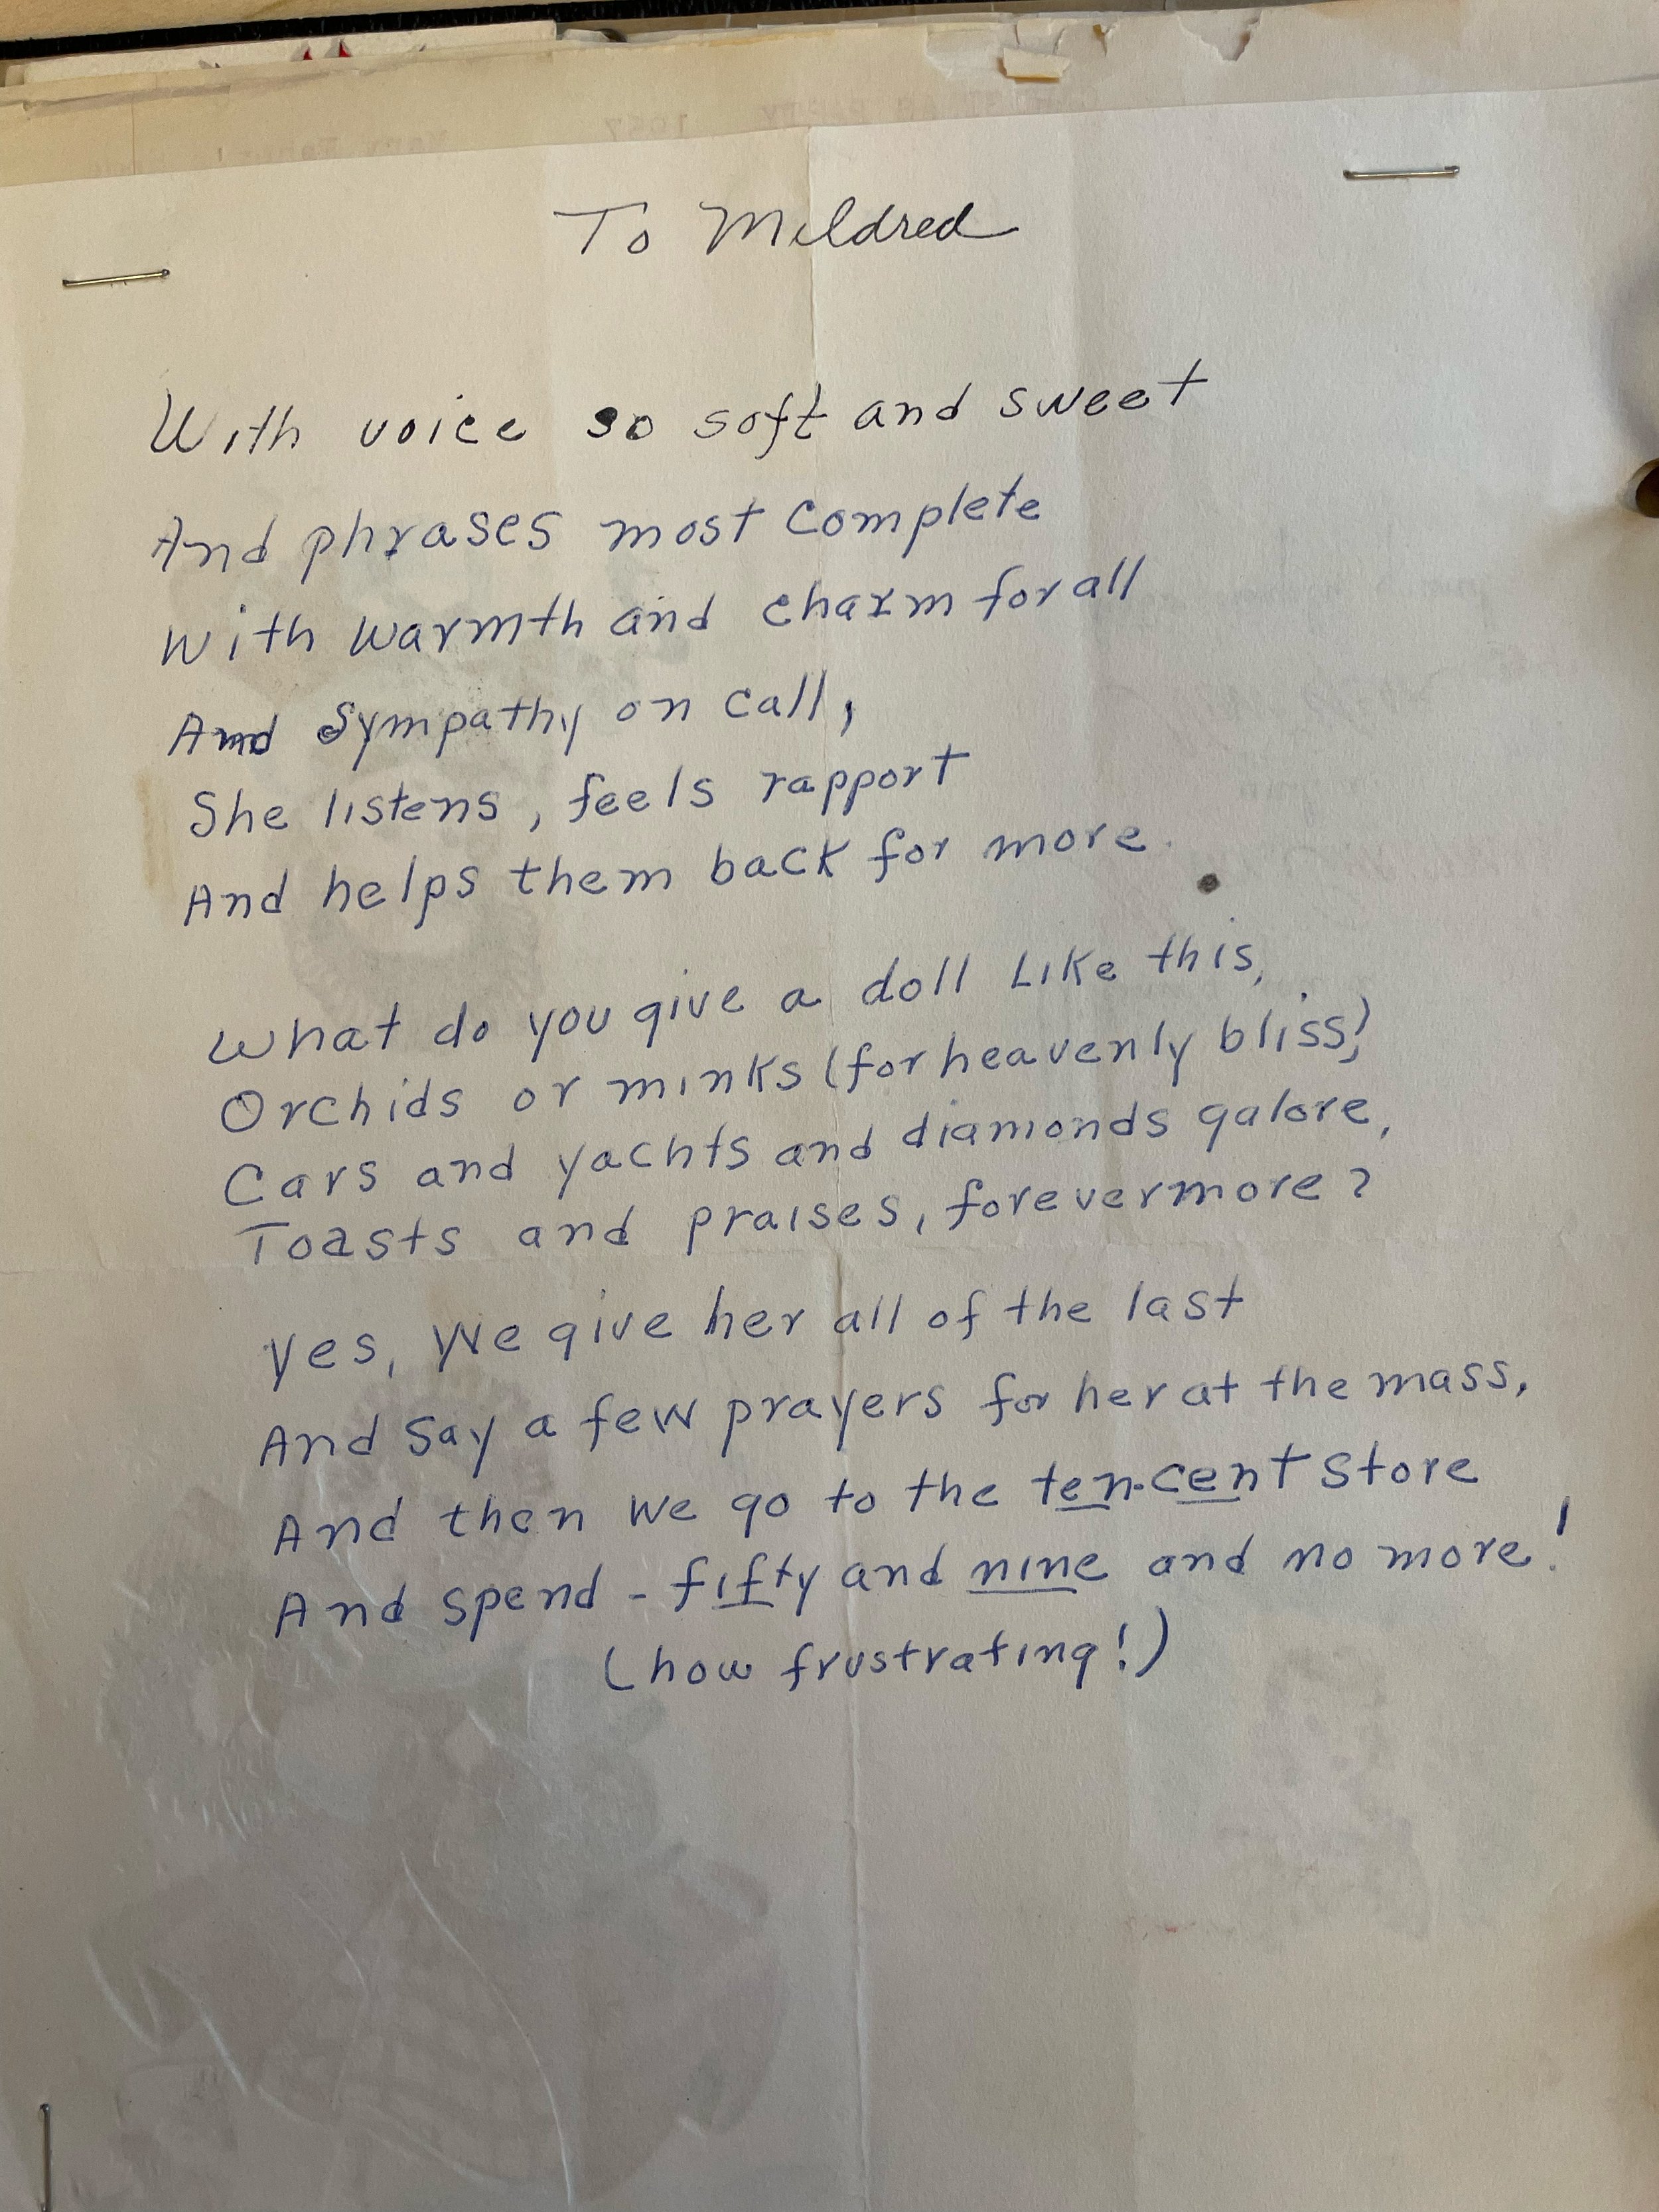 To Mildred
With voice so soft and sweet
And phrases most complete
With warmth and charm for all
And Sympathy on call,
She listens, feels rapport
And helps them back for more.
What do you give a doll Like this,
Orchids or minks (for heavenly bliss)
Cars and yachts and diamonds galore,
Toasts and praises, forevermore?
Yes, We give her all of the last
And Say a few prayers for her at the mass,
And then we go to the ten-cent Store
And spend - fifty and nine and no more!
(how frustrating!)